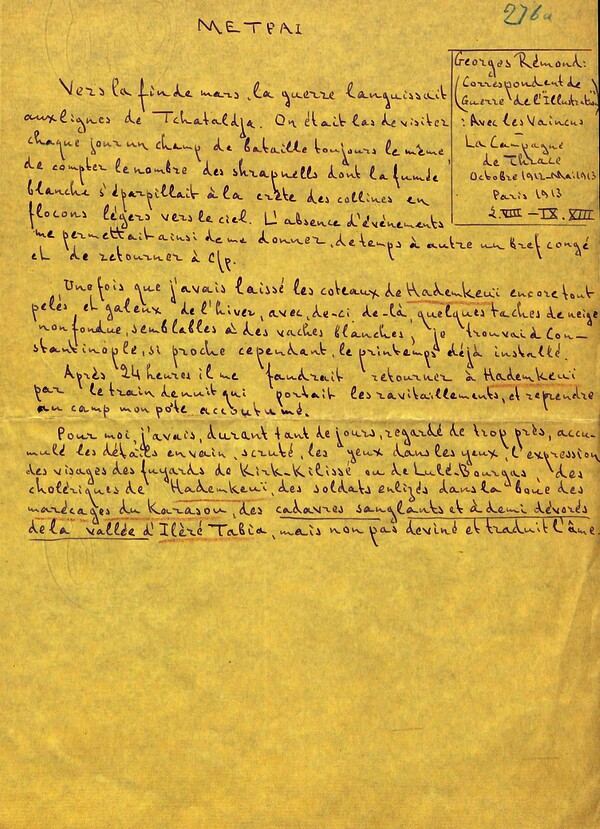 276a
METPAI
Georges Rémond:
(Correspondent de
Guerre de l'"Illustration")
: Avec les Vaincus
La Campagne
de Thrace
Octobre 1912-Mai 1913
Paris 1913
2.VIII-IX.XIII
Vers la fin de mars, la guerre languissait
aux lignes de Tchataldja. On était las de visiter
chaque jour un champ de bataille toujours le même,
de compter le nombre des shrapnells dont la fumée
blanche s'éparpillait à la crête des collines en
flocons légers vers le ciel. L'absence d'événements
me permettait ainsi de me donner, de temps à autre un bref congé
et de retourner à C/p.
Une fois que j'avais laissé les coteaux de Hademkeuï encore tout
pelés et galeux de l'hiver, avec, de-ci de-là, quelques taches de neige
non fondue, semblables à des vaches blanches, je trouvai à Con-
stantinople, si proche cependant, le printemps déjà installé.
Après 24 heures il me faudrait retourner à Hademkeui
par le train de nuit qui portait les ravitaillements, et reprendre
au camp mon poste accoutumé.
Pour moi, j'avais, durant tant de jours, regardé de trop près, accu-
mulé les détails en vain, scruté, les yeux dans les yeux, l'expression
des visages des fuyards de Kirk-Kilissé ou de Lulé-Bourgas, des
cholériques de Hademkeuï, des soldats enlizés dans la boue des
marécages du Karasou, des cadavres sanglants et à demi dévorés
de la vallée d'Iléré Tabia, mais non pas deviné et traduit l'âme.